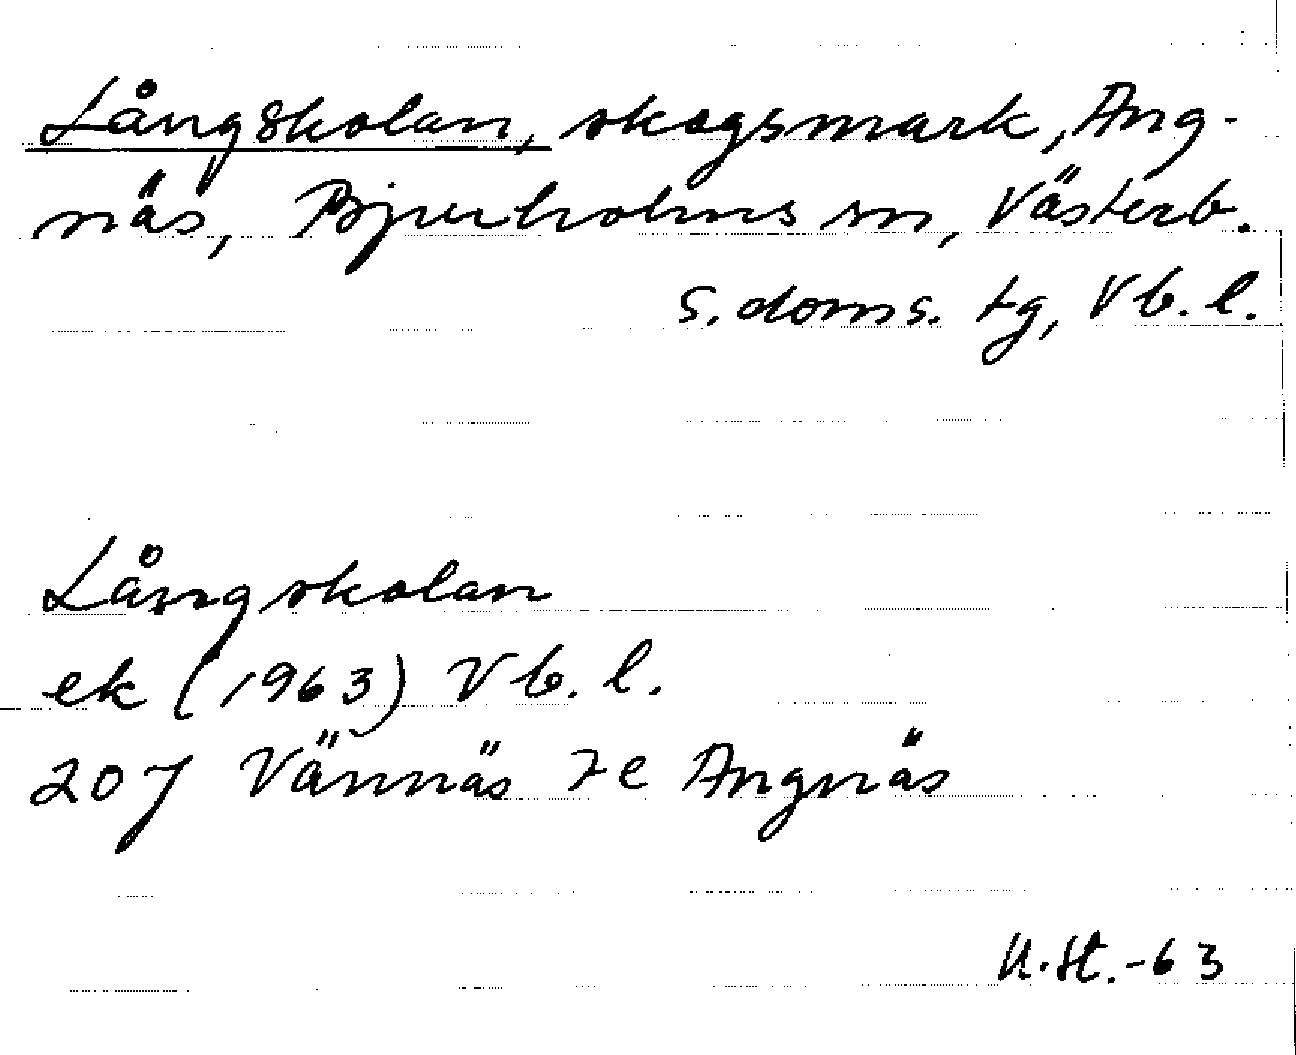 Långskolan, skogsmark, Äng-
näs, Bjurholms sn, Västerb.
s. doms. tg, Vb. l.
Långskolan
ek (1963) Vb. l.
207 Vännäs 7e Ängnäs
U.St.-63